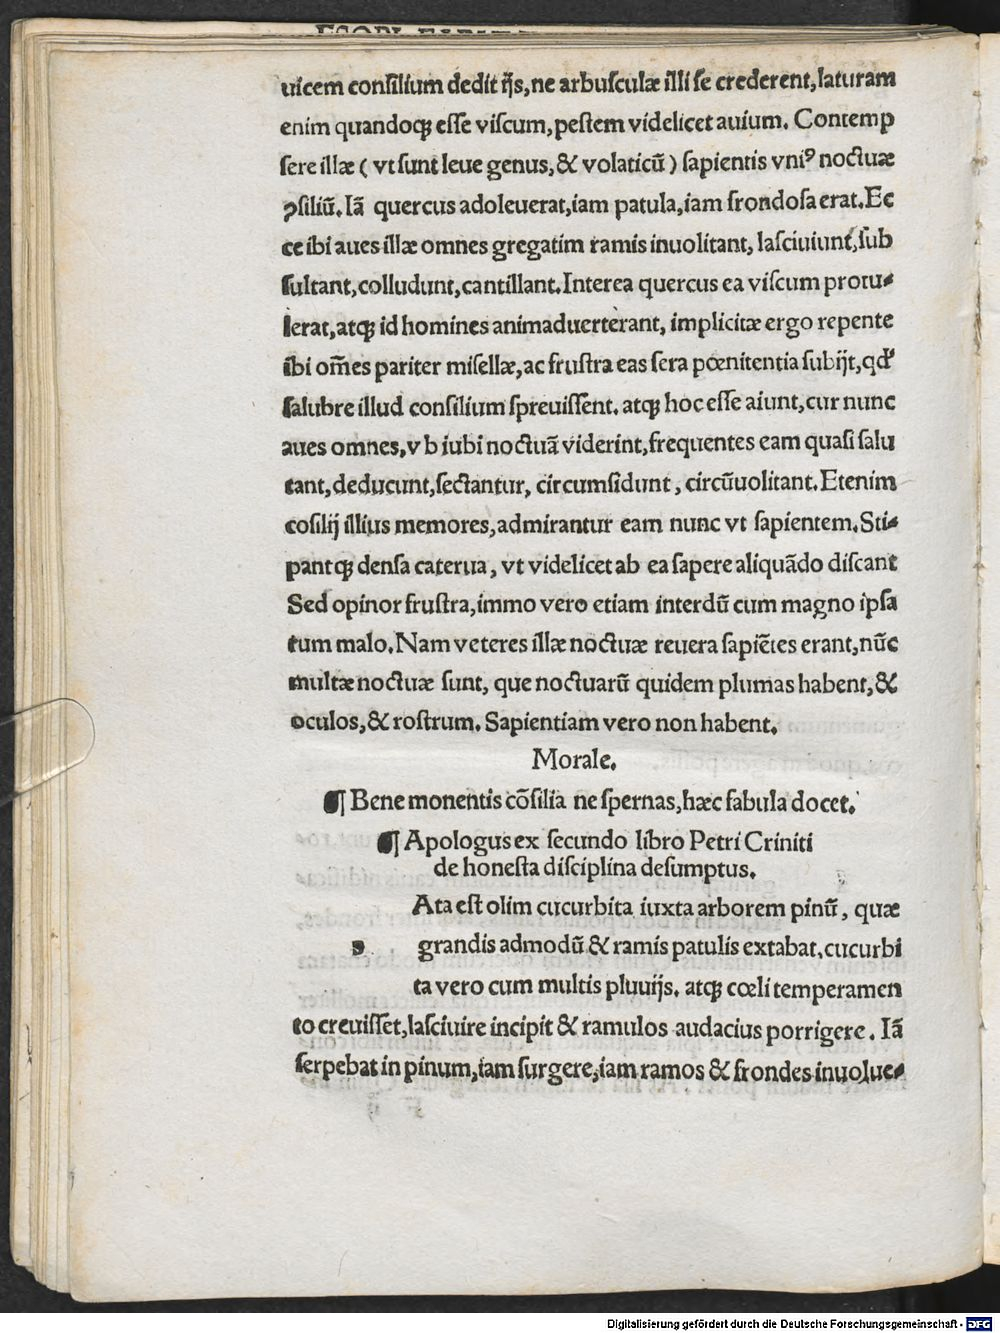 uicem consilium dedit ijs, ne arbusculæ illi se crederent, laturam
enim quandoqꝫ esse viscum, pestem videlicet auium. Contemp
sere illæ ( vt sunt leue genus, & volaticũ ) sapientis vniꝰ noctuæ
ꝯsiliũ. Iã quercus adoleuerat, iam patula, iam frondosa erat. Ec
ce ibi aues illæ omnes gregatim ramis inuolitant, lasciuiunt, sub
sultant, colludunt, cantillant. Interea quercus ea viscum protu-
lerat, atqꝫ id homines animaduerterant, implicitæ ergo repente
ibi om̃es pariter misellæ, ac frustra eas sera pœnitentia subijt, qd'
salubre illud consilium spreuissent. atqꝫ hoc esse aiunt, cur nunc
aues omnes, v b iubi noctuã viderint, frequentes eam quasi salu
tant, deducunt, sectantur, circumsidunt, circũuolitant. Etenim
cosilij illius memores, admirantur eam nunc vt sapientem. Sti-
pant qꝫ densa caterua, vt videlicet ab ea sapere aliquãdo discant
Sed opinor frustra, immo vero etiam interdũ cum magno ipsa
rum malo. Nam veteres illæ noctuæ reuera sapiẽtes erant, nũc
multæ noctuæ sunt, que noctuarũ quidem plumas habent, &
oculos, & rostrum. Sapientiam vero non habent.
Morale.
¶ Bene monentis cõsilia ne spernas, hæc fabula docet.
¶ Apologus ex secundo libro Petri Criniti
de honesta disciplina desumptus.
Ata est olim cucurbita iuxta arborem pinũ, quæ
grandis admodũ & ramis patulis extabat, cucurbi
ta vero cum multis pluuijs. atqꝫ cœli temperamen
to creuisset, lasciuire incipit & ramulos audacius porrigere. Iã
serpebat in pinum, iam surgere, iam ramos & frondes inuolue-
Digitalisierung gefördert durch die Deutsche Forschungsgemeinschaft - DFG